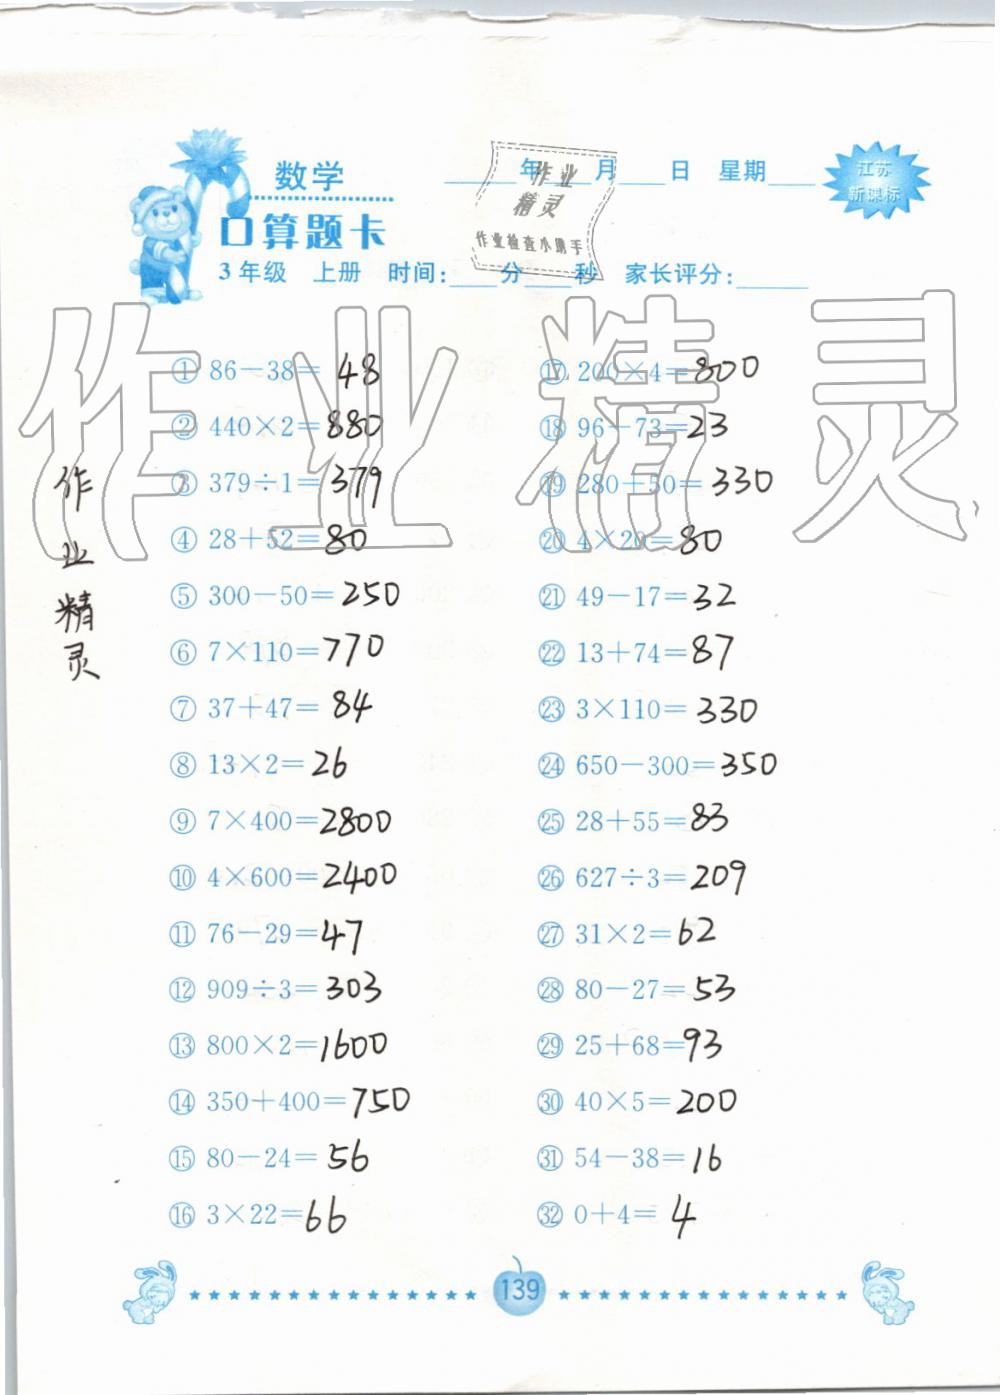 数学
____年____月____日 星期____
江苏
新课标
口算题卡
作业
精灵
作业检查小助手
3年级 上册 时间:____分____秒 家长评分:____
作业精灵
作业精灵
① 86－38＝48
② 440×2＝880
③ 379÷1＝379
④ 28＋52＝80
⑤ 300－50＝250
⑥ 7×110＝770
⑦ 37＋47＝84
⑧ 13×2＝26
⑨ 7×400＝2800
⑩ 4×600＝2400
⑪ 76－29＝47
⑫ 909÷3＝303
⑬ 800×2＝1600
⑭ 350＋400＝750
⑮ 80－24＝56
⑯ 3×22＝66
⑰ 200×4＝800
⑱ 96－73＝23
⑲ 280＋50＝330
⑳ 4×20＝80
㉑ 49－17＝32
㉒ 13＋74＝87
㉓ 3×110＝330
㉔ 650－300＝350
㉕ 28＋55＝83
㉖ 627÷3＝209
㉗ 31×2＝62
㉘ 80－27＝53
㉙ 25＋68＝93
㉚ 40×5＝200
㉛ 54－38＝16
㉜ 0＋4＝4
139